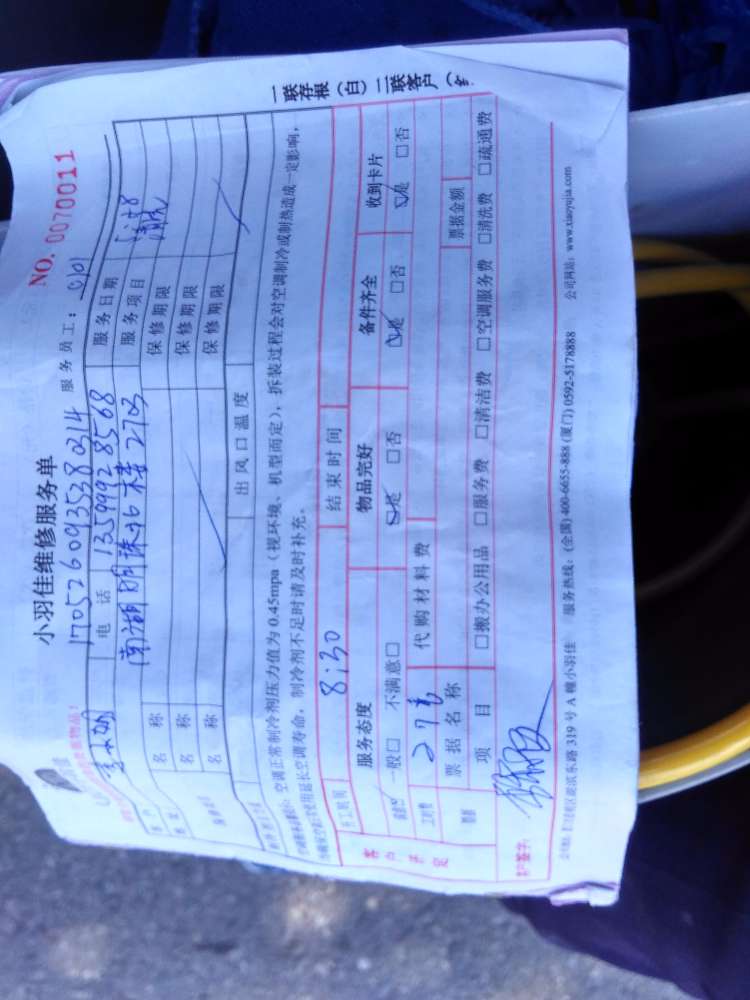 小羽佳维修服务单
NO. 0070011
1705260935380314 服务员工：
电话 13599928568 服务日期
南湖明珠北楼2703 服务项目 清洗
名称 保修期限
名称 保修期限
名称 保修期限
出风口温度
空调正常制冷剂压力值为0.45mpa（视环境、机型而定），拆装过程会对空调制冷或制热造成一定影响，
延长空调寿命，制冷剂不足时请及时补充。
开工时间 8:30 结束时间
服务态度 物品完好 备件齐全 收到卡片
一般□ 不满意□ ☑是 □否 ☑是 □否 ☑是 □否
工时费 代购材料费
票据名称 票据金额
项目 □搬办公用品 □服务费 □清洁费 □空调服务费 □清洗费 □疏通费
客户签字：
319号A幢小羽佳 服务热线：(全国) 400-6655-888 (厦门) 0592-5178888 公司网站：www.xiaoyujia.com
一联存根（白）二联客户（